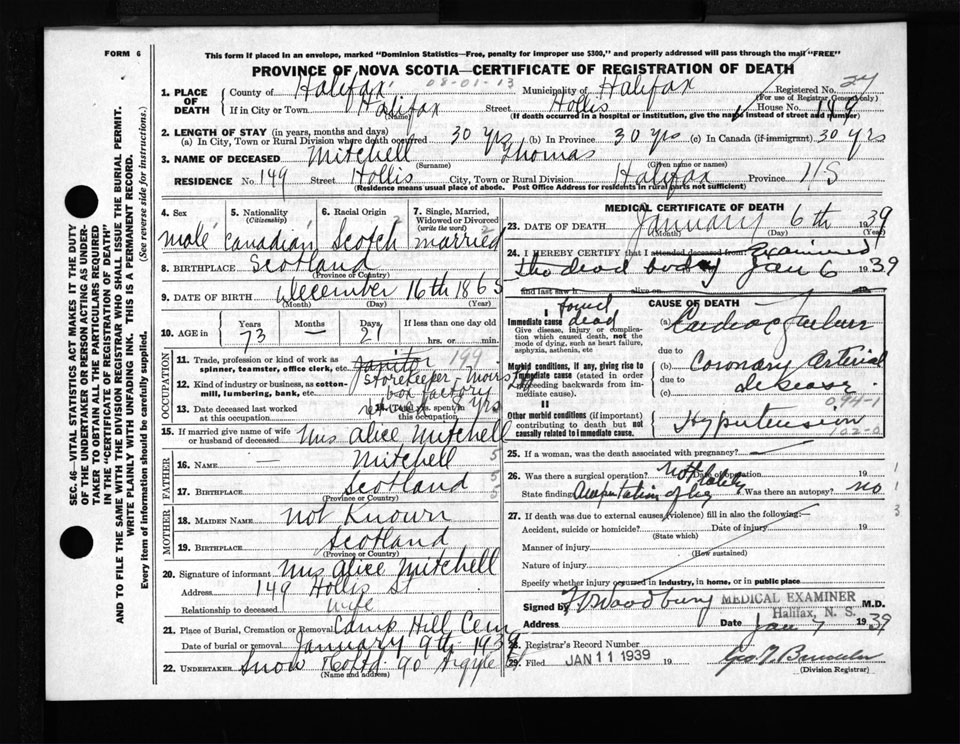 FORM 6
This form if placed in an envelope, marked "Dominion Statistics—Free, penalty for improper use $300," and properly addressed will pass through the mail "FREE"
PROVINCE OF NOVA SCOTIA—CERTIFICATE OF REGISTRATION OF DEATH
08-01-13
1. PLACE OF DEATH
County of Halifax Municipality of Halifax Registered No. 24
(For use of Registrar General only)
If in City or Town Halifax Street Hollis House No. 149
(Name) (If death occurred in a hospital or institution, give the name instead of street and number)
2. LENGTH OF STAY (in years, months and days)
(a) In City, Town or Rural Division where death occurred 30 yrs (b) In Province 30 yrs (c) In Canada (if immigrant) 30 yrs
3. NAME OF DECEASED Mitchell Thomas
(Surname) (Given name or names)
RESIDENCE No. 149 Street Hollis City, Town or Rural Division Halifax Province NS
(Residence means usual place of abode. Post Office Address for residents in rural parts not sufficient)
SEC. 46—VITAL STATISTICS ACT MAKES IT THE DUTY
OF THE UNDERTAKER OR PERSON ACTING AS UNDER-
TAKER TO OBTAIN ALL THE PARTICULARS REQUIRED
IN THE "CERTIFICATE OF REGISTRATION OF DEATH"
AND TO FILE THE SAME WITH THE DIVISION REGISTRAR WHO SHALL ISSUE THE BURIAL PERMIT.
WRITE PLAINLY WITH UNFADING INK. THIS IS A PERMANENT RECORD.
Every item of information should be carefully supplied. (See reverse side for instructions.)
4. Sex 5. Nationality (Citizenship) 6. Racial Origin 7. Single, Married, Widowed or Divorced (write the word)
male Canadian Scotch married
8. BIRTHPLACE Scotland
(Province or Country)
9. DATE OF BIRTH December 16th 1865
(Month) (Day) (Year)
10. AGE in Years Months Days If less than one day
73 — 21 hrs. or min.
OCCUPATION
11. Trade, profession or kind of work as spinner, teamster, office clerk, etc. Janitor 199
12. Kind of industry or business, as cotton-mill, lumbering, bank, etc. Storekeeper - Moirs box factory
13. Date deceased last worked at this occupation retired spent in this occupation yrs
15. If married give name of wife or husband of deceased Mrs Alice Mitchell
FATHER
16. Name — Mitchell 5
17. Birthplace Scotland 5
(Province or Country) 5
MOTHER
18. Maiden Name Not Known
19. Birthplace Scotland
(Province or Country)
20. Signature of informant Mrs Alice Mitchell
Address 149 Hollis St
Relationship to deceased wife
21. Place of Burial, Cremation or Removal Camp Hill Cem
Date of burial or removal January 9th 1939
22. Undertaker Snow & Co Ltd 90 Argyle St
(Name and address)
MEDICAL CERTIFICATE OF DEATH
23. DATE OF DEATH January 6th 1939
(Month) (Day) (Year)
24. I HEREBY CERTIFY that I attended deceased from Examined
the dead body Jan 6 1939
and last saw h alive on
CAUSE OF DEATH
I found dead
Immediate cause
Give disease, injury or complication which caused death, not the mode of dying, such as heart failure, asphyxia, asthenia, etc
(a) Cardiac failure
due to
Morbid conditions, if any, giving rise to immediate cause (stated in order proceeding backwards from immediate cause).
(b) Coronary Arterial
due to disease
(c)
094-1
II
Other morbid conditions (if important) contributing to death but not causally related to immediate cause.
Hypertension
102-0
25. If a woman, was the death associated with pregnancy? —
26. Was there a surgical operation? Not lately Date of operation 19
State finding Amputation of leg Was there an autopsy? no
1
1
3
27. If death was due to external causes (violence) fill in also the following:—
Accident, suicide or homicide? Date of injury 19
(State which)
Manner of injury
(How sustained)
Nature of injury
Specify whether injury occurred in industry, in home, or in public place
Signed by Woodbury MEDICAL EXAMINER M.D.
Halifax, N. S.
Address Date Jan 7 1939
28. Registrar's Record Number
29. Filed JAN 11 1939 19
(Division Registrar)